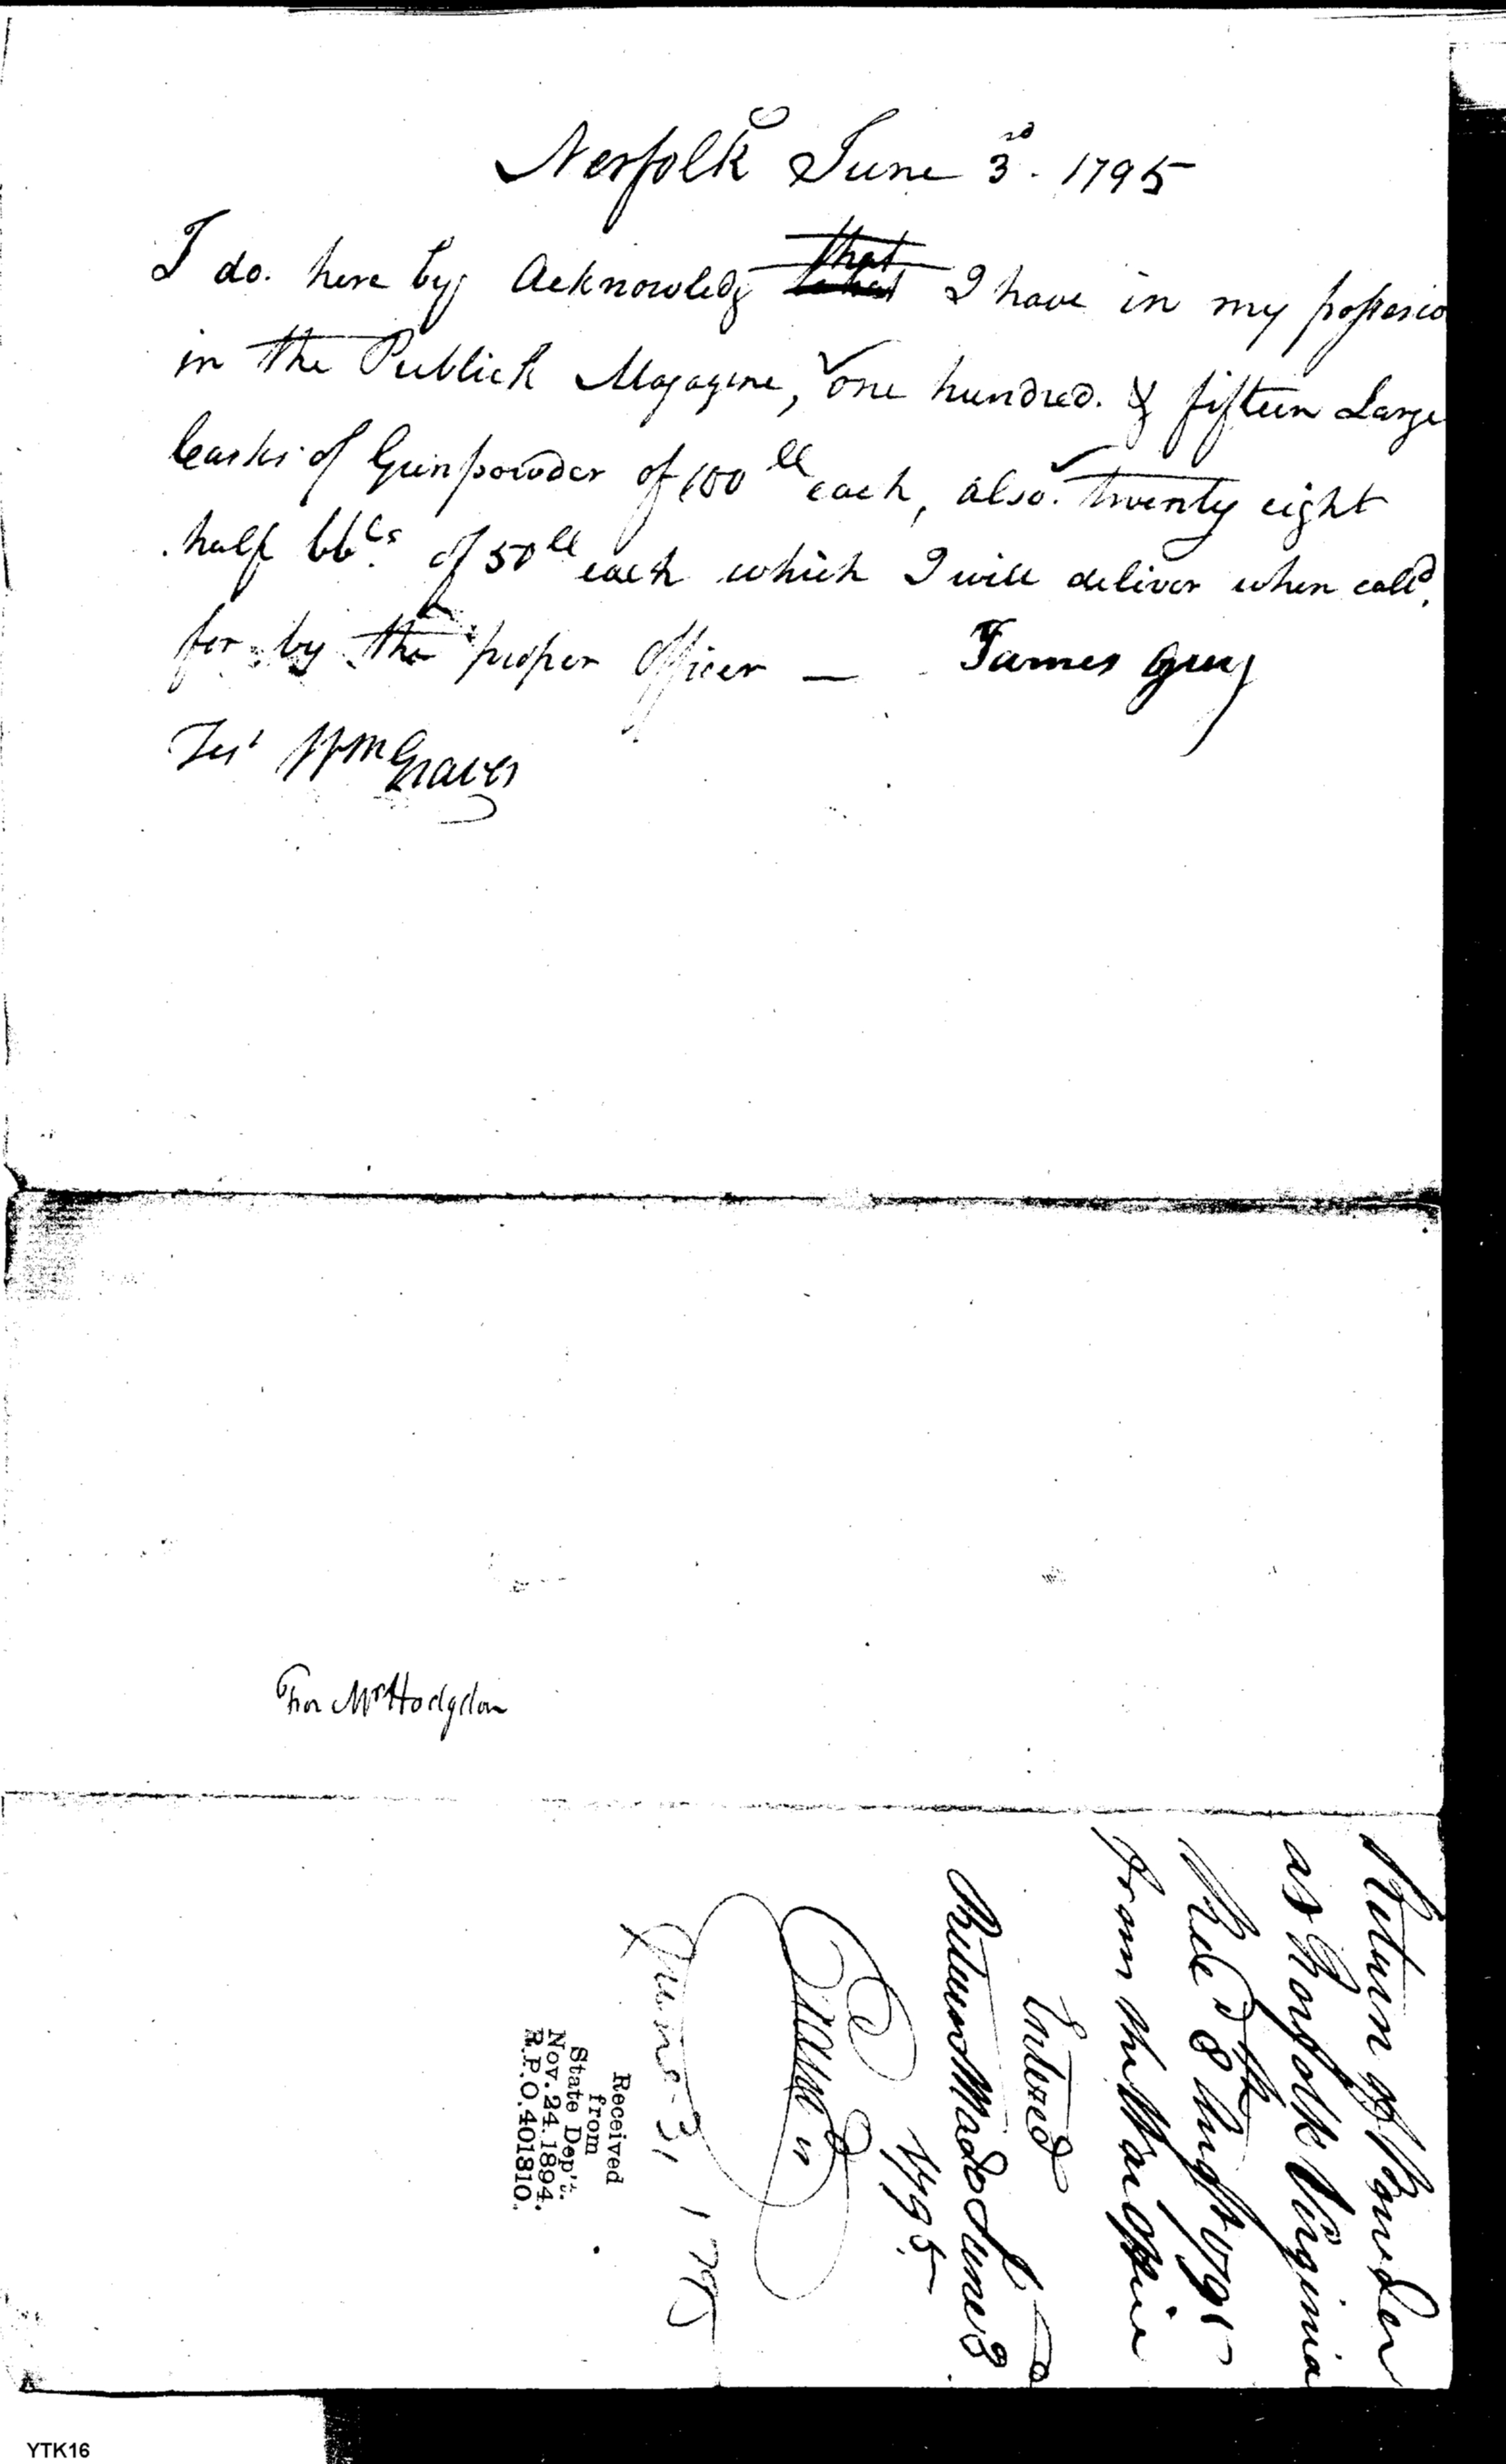 Norfolk June 3rd. 1795
I do. here by Acknowledg that I have in my possesio
in the Publick Magazine, one hundred. & fifteen Large
Casks of Gunpowder of 100 ll each, also. twenty eight
half bbls. of 50 ll each which I will deliver when calld.
for by the proper Officer — James Guy
Test Wm Graves
For Mr Hodgdon
Return of Powder
at Norfolk Virginia
Recd 8th Augst 1795
from the War Office
Entered
Return Made June 3d
1795
June 3, 1795
Received
from
State Dep't.
Nov. 24. 1894.
R.P.O. 401810.
YTK16